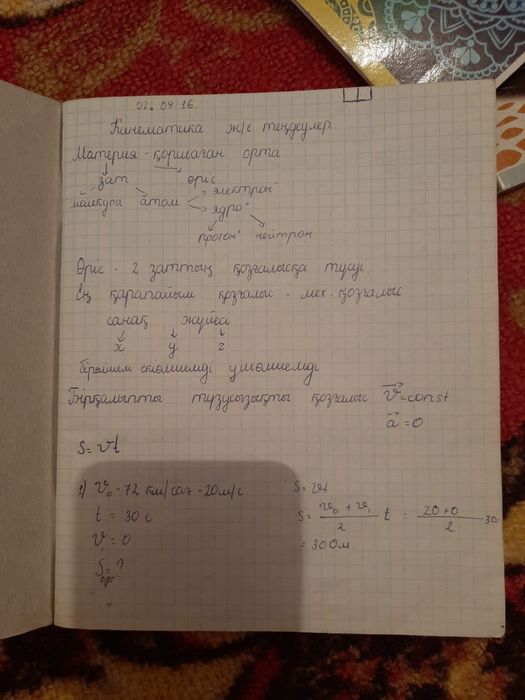 02. 09 16.
1
Кинематика ж/е теңдеулер
Материя - қоршаған орта
зат өріс
молекула атом электрон⁻
ядро⁺
протон⁺ нейтрон
Өріс - 2 заттың қозғалысқа түсуі.
Ең қарапайым қозғалыс - мех. қозғалыс
санақ жүйесі
x y z
бірөлшем екіөлшемді үшөлшемді
Бірқалыпты түзусызықты қозғалыс v⃗=const
a⃗=0
S=vt
1) v₀=72 км/сағ=20м/с S=vt
t = 30 с S= (v₀+v₁)/2 t = (20+0)/2 30
v=0 = 300м.
S=?
орт.